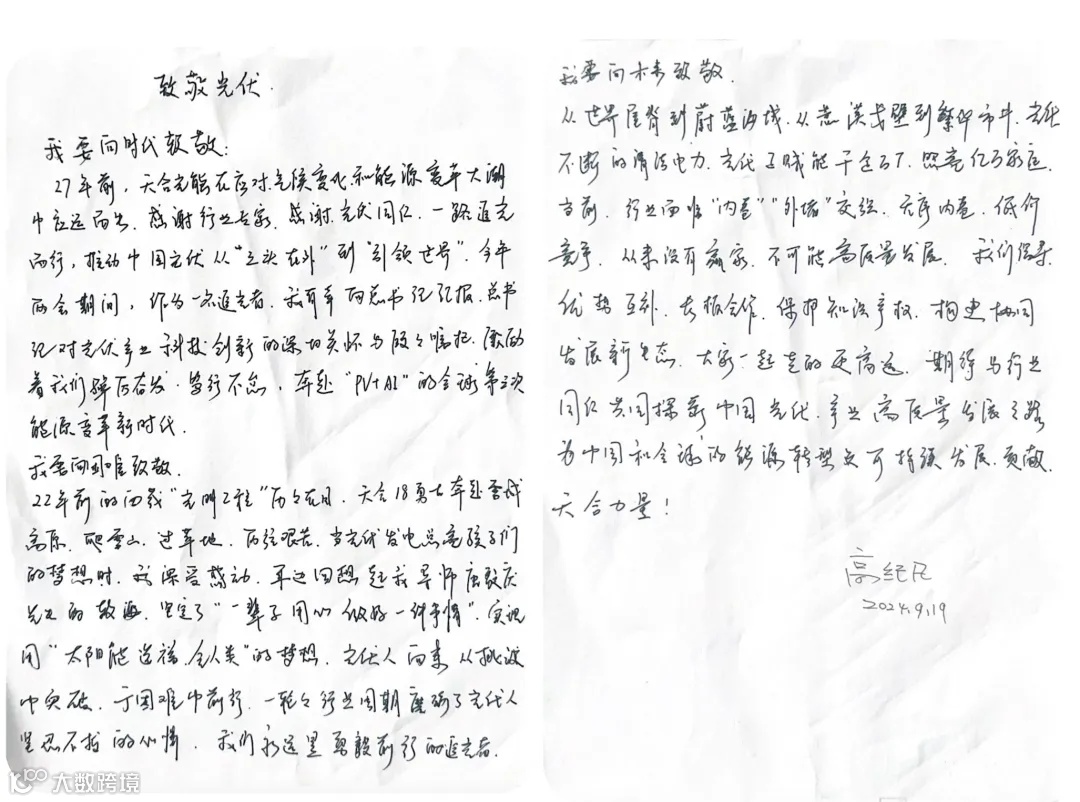 致敬光伏.
我要向时代致敬:
27年前，天合光能在应对气候变化和能源变革大潮
中应运而生. 感谢行业专家. 感谢光伏同仁. 一路追光
而行，推动中国光伏从“三头在外”到“引领世界”. 今年
两会期间，作为一名追光者. 我有幸向总书记汇报. 总书
记对光伏产业科技创新的深切关怀与殷殷嘱托. 激励
着我们踔厉奋发. 笃行不怠，奔赴“PV+AI”的全球第三次
能源变革新时代.
我要向困难致敬.
22年前的西藏“光明工程”历历在目. 天合18勇士奔赴雪域
高原. 爬雪山. 过草地. 历经艰苦. 当光伏发电点亮孩子们
的梦想时. 我深受感动. 耳边回想起我导师唐敖庆
先生的教诲. 坚定了“一辈子用心做好一件事情”. 实现
用“太阳能造福全人类”的梦想. 光伏人向来从挑战
中突破. 于困难中前行. 一轮轮行业周期磨砺了光伏人
坚忍不拔的心情. 我们永远是勇毅前行的追光者.
我要向未来致敬.
从世界屋脊到蔚蓝海域. 从荒漠戈壁到繁华市井. 光伏
不断的清洁电力. 光伏+赋能千企百厂. 照亮亿万家庭.
当前. 行业面临“内卷”“外堵”交织. 无序内卷. 低价
竞争. 从来没有赢家. 不可能高质量发展. 我们倡导
优势互补. 长板合作. 保护知识产权. 构建协同
发展新生态. 大家一起走的更高远. 期待与行业
同仁共同探索中国光伏产业高质量发展之路
为中国和全球的能源转型及可持续发展. 贡献.
天合力量！
高纪凡
2024.9.19
大数跨境